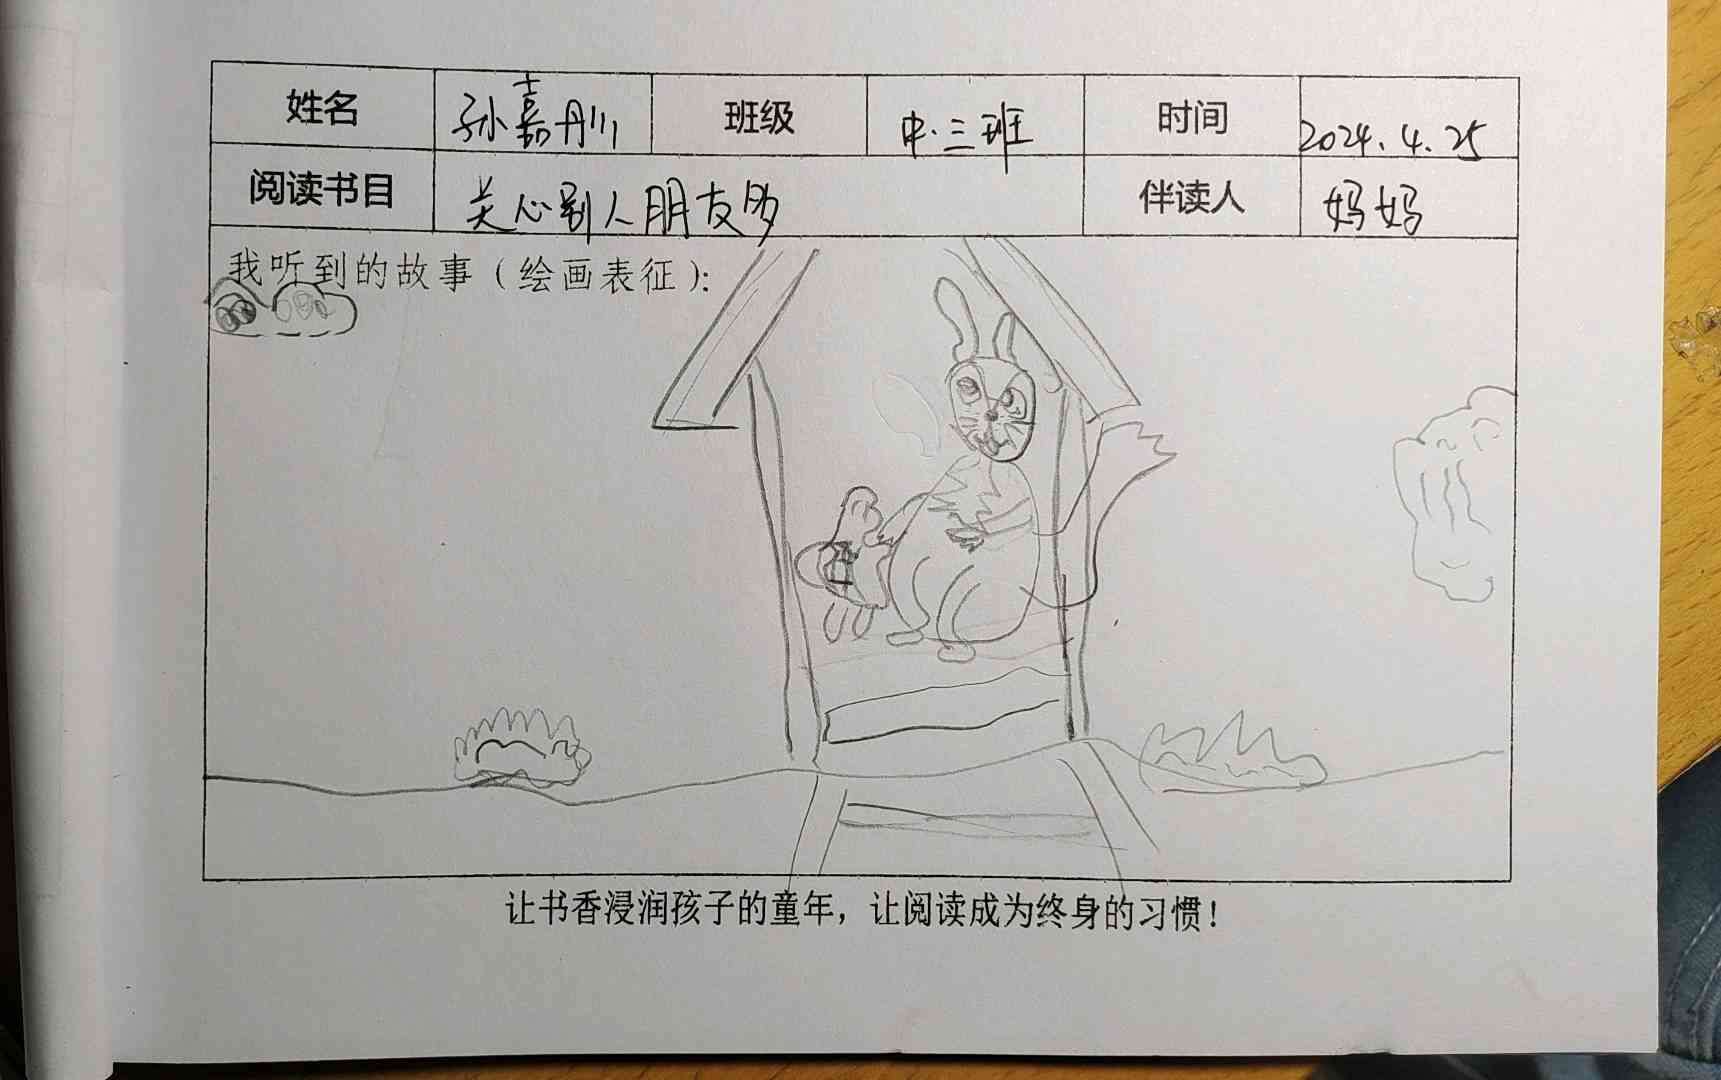 姓名 孙嘉彤 班级 中.三班 时间 2024.4.25
阅读书目 关心别人朋友多 伴读人 妈妈
我听到的故事（绘画表征）：
让书香浸润孩子的童年，让阅读成为终身的习惯！